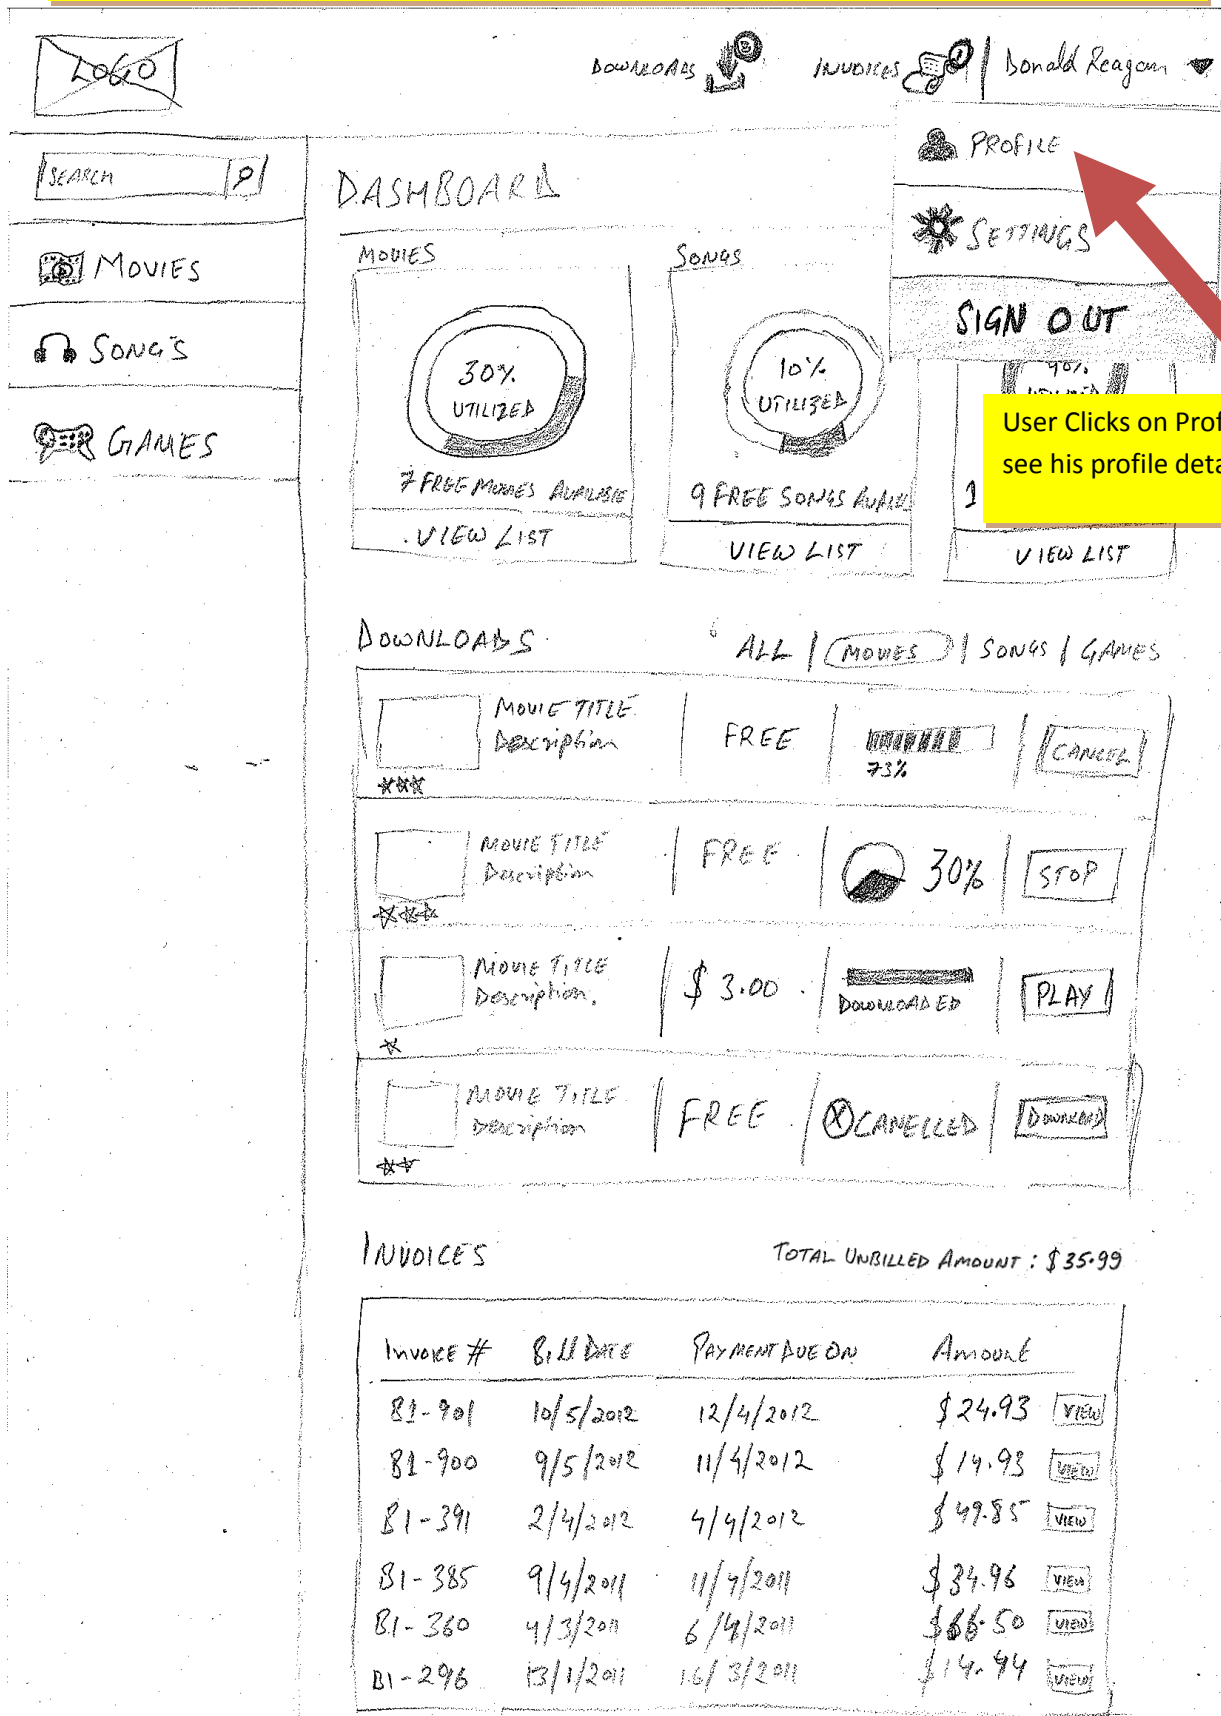 LOGO
DOWNLOADS
INVOICES
Donald Reagan
PROFILE
SETTINGS
SIGN OUT
SEARCH
MOVIES
SONG'S
GAMES
DASHBOARD
MOVIES
30%
UTILIZED
7 FREE MOVIES AVAILABLE
VIEW LIST
SONGS
10%
UTILIZED
9 FREE SONGS
VIEW LIST
90%
1
VIEW LIST
User Clicks on Prof
see his profile deta
DOWNLOADS
ALL | MOVIES | SONGS | GAMES
MOVIE TITLE
Description
FREE
73%
CANCEL
MOVIE TITLE
Description
FREE
30%
STOP
MOVIE TITLE
Description.
$ 3.00
DOWNLOADED
PLAY
MOVIE TITLE
Description
FREE
CANELLED
DOWNLOAD
INVOICES
TOTAL UNBILLED AMOUNT : $35.99
Invoice # Bill Date PAYMENT DUE ON Amount
B1-901 10/5/2012 12/4/2012 $24.93 VIEW
B1-900 9/5/2012 11/4/2012 $14.93 VIEW
B1-391 2/4/2012 4/4/2012 $49.85 VIEW
B1-385 9/4/2011 11/4/2011 $34.96 VIEW
B1-360 4/3/2011 6/4/2011 $66.50 VIEW
B1-296 13/1/2011 16/3/2011 $14.94 VIEW